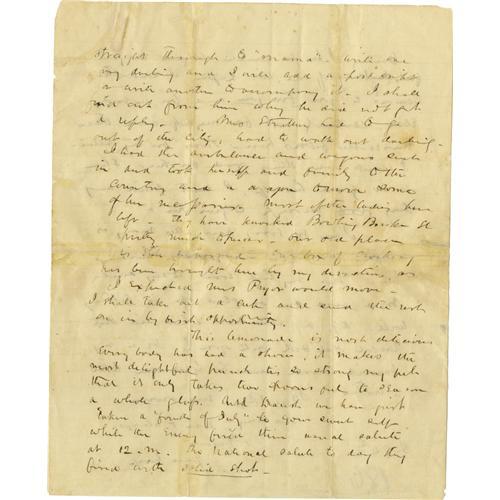 straight through to "Mama" write one
my darling and I will add a postscript
or write another to accompany it. I shall
find out from him why he did not get
a reply. Mrs Stratton had to go
out of the city, had to walk out darling.
I had the ambulance and wagons sent
in and took herself and family to the
country and a wagon to move some
of her necessaries. Most of the ladies have
left. They have knocked Bowling Brook St
pretty much to pieces. our old place
is
has been brought here by my direction, as
I expected Mrs Pryor would move.
I shall take out a cake and send the rest
on in by first opportunity.
This lemonade is most delicious
Everybody has had a share, it makes the
most delightful punch tis so strong my pet
that it only takes two spoons full to season
a whole glass. And Dansh we have just
taken a "fourth of July" to your sweet self
while the Enemy fired their usual salute
at 12. M. the National salute to day they
fired with solid shot.